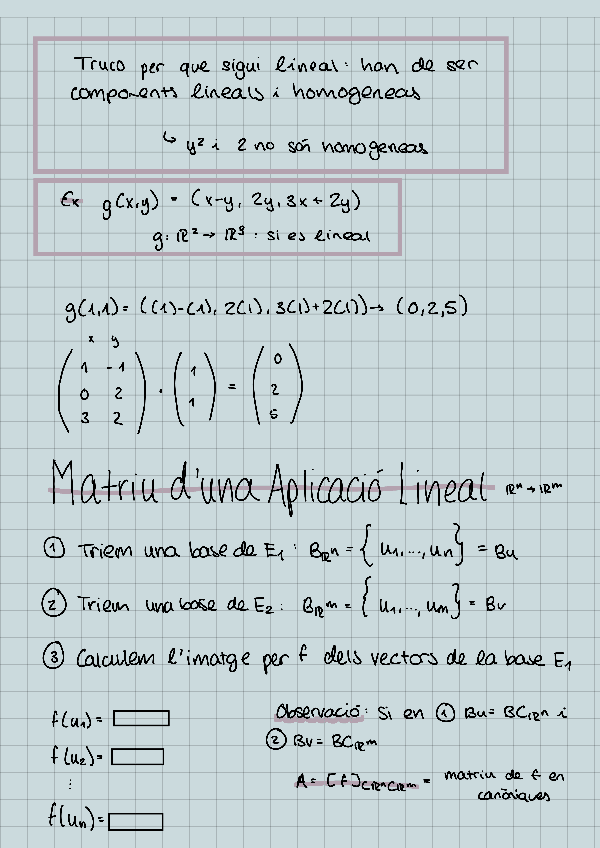 Truco per que sigui lineal: han de ser
components lineals i homogeneas
↳ y² i 2 no són homogeneas
Ex g(x,y) = (x-y, 2y, 3x + 2y)
g: ℝ² → ℝ³ : si es lineal
g(1,1) = ((1)-(1), 2(1), 3(1)+2(1)) → (0,2,5)
x y
1 -1 1 0
0 2 · = 2
3 2 1 5
Matriu d'una Aplicació Lineal ℝⁿ → ℝᵐ
① Triem una base de E₁ : Bℝⁿ = {u₁,..., uₙ} = Bu
② Triem una base de E₂ : Bℝᵐ = {u₁,..., uₘ} = Bv
③ Calculem l'imatge per f dels vectors de la base E₁
f(u₁) =
f(u₂) =
⋮
f(uₙ) =
Observació: Si en ① Bu = BCℝⁿ i
② Bv = BCℝᵐ
A = [f]Cℝⁿ,Cℝᵐ = matriu de f en
canòniques